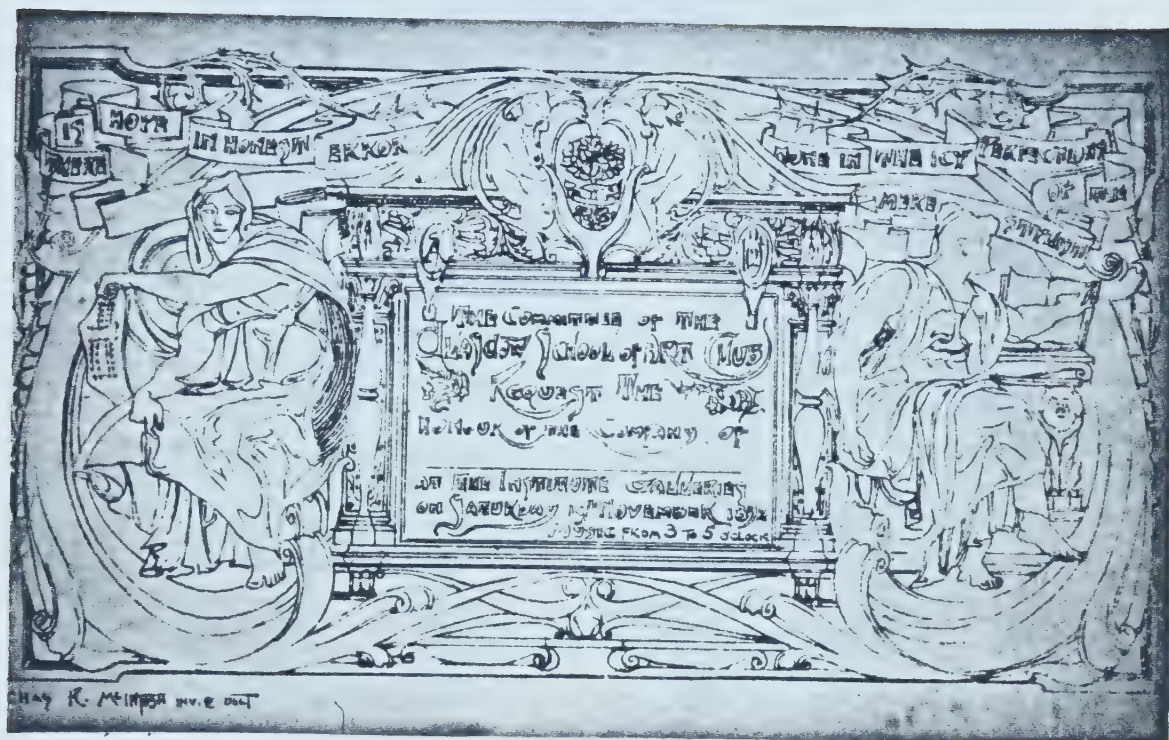 THERE IS HOPE IN HONEST ERROR
NONE IN THE ICY PERFECTIONS OF THE MERE STYLIST
THE COMMITTEE OF THE
GLASGOW SCHOOL OF ART CLUB
REQUEST THE
HONOUR OF THE COMPANY OF
AT THE INSTITUTE GALLERIES
ON SATURDAY 19TH NOVEMBER 1892
MUSIC FROM 3 TO 5 O'CLOCK
CHAS R. McINTOSH INV. E DELT